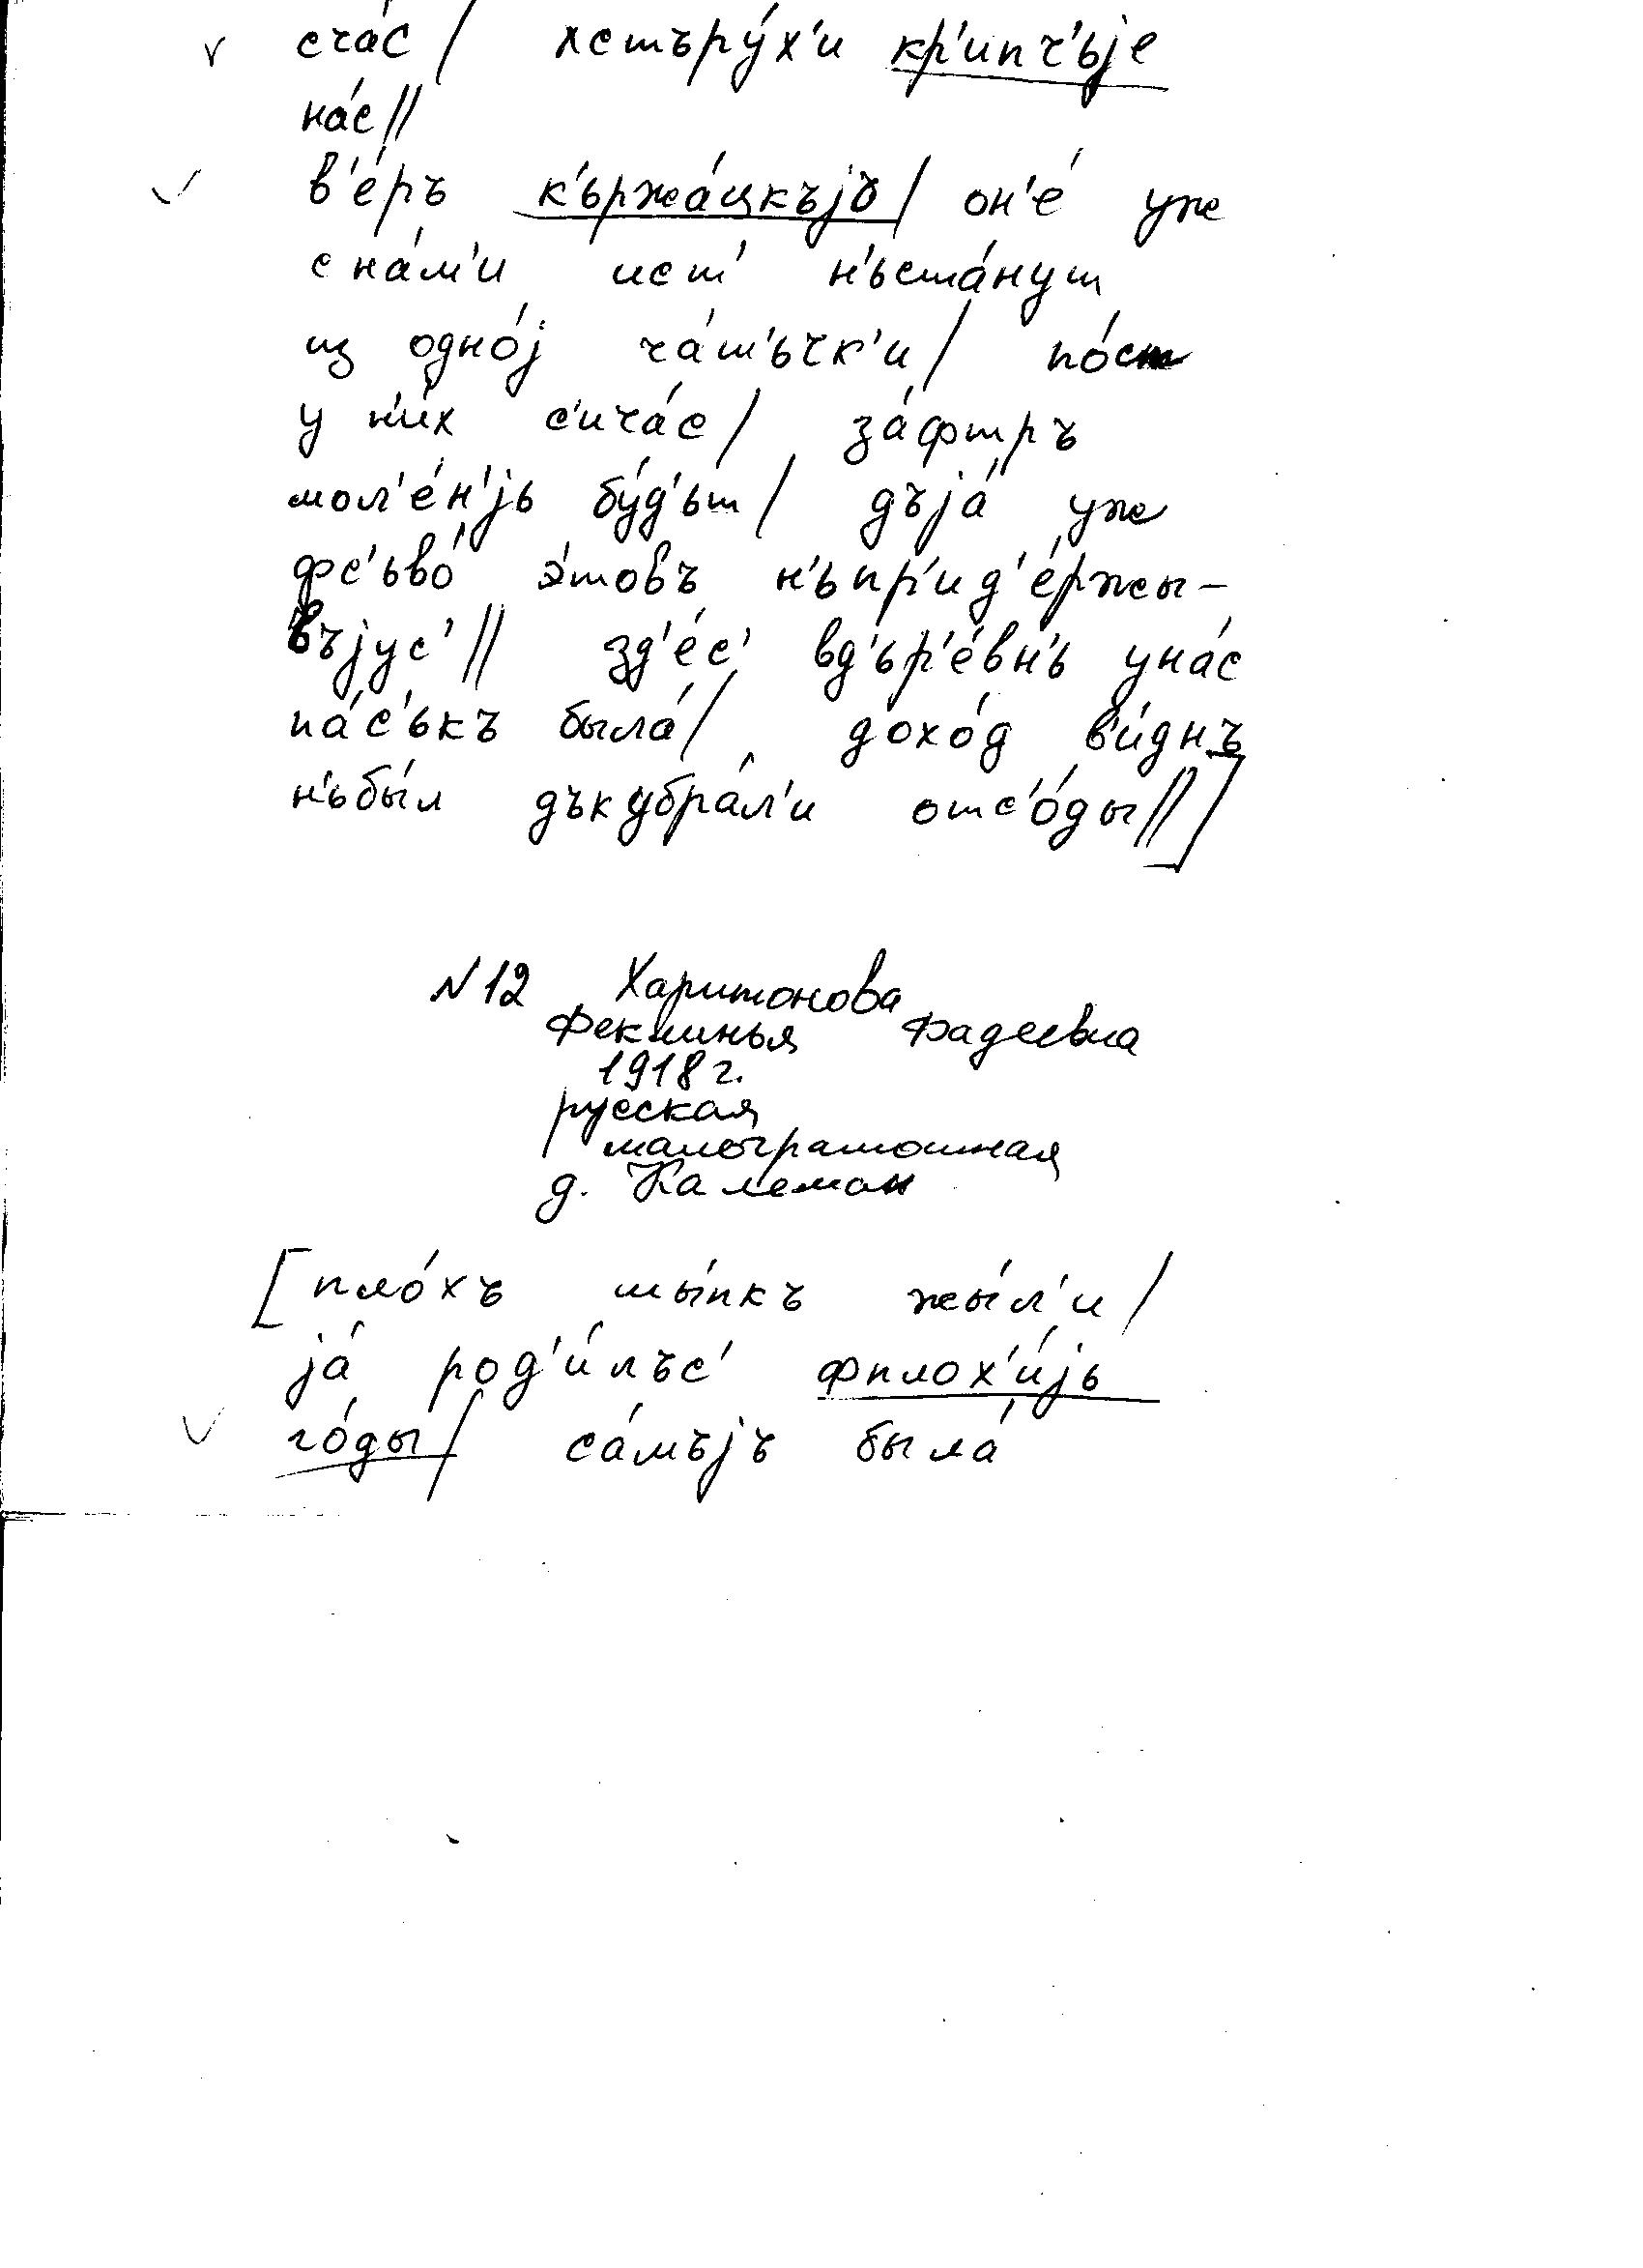 сча́с/ хстъру́х'и кр'ипч'ъjе
на́с//
в'е́ръ к'ьржа́цкъjъ/ он'е́ уж
с на́м'и ист' н'ьста́нут
из одно́j ча́ш'ьчк'и/ по́ст
у н'и́х с'ича́с/ за́фтръ
мол'е́н'jь бу́д'ьт/ дъjа́ уж
фс'ьво́ э́товъ н'ьпр'ид'е́ржы-
въjус'// зд'е́с' вд'ьр'е́вн'ь уна́с
па́с'ькъ была́/ дохо́д в'и́днъ
н'ьбы́л дъкубра́л'и отс'о́ды//]
N 12 Харитонова
Феклинья Фадеевна
1918 г.
русская
малограмотная
д.
[пло́хъ мы́пкъ жы́л'и/
jа́ род'и́лъс' фплох'и́jь
го́ды/ са́мъjъ была́